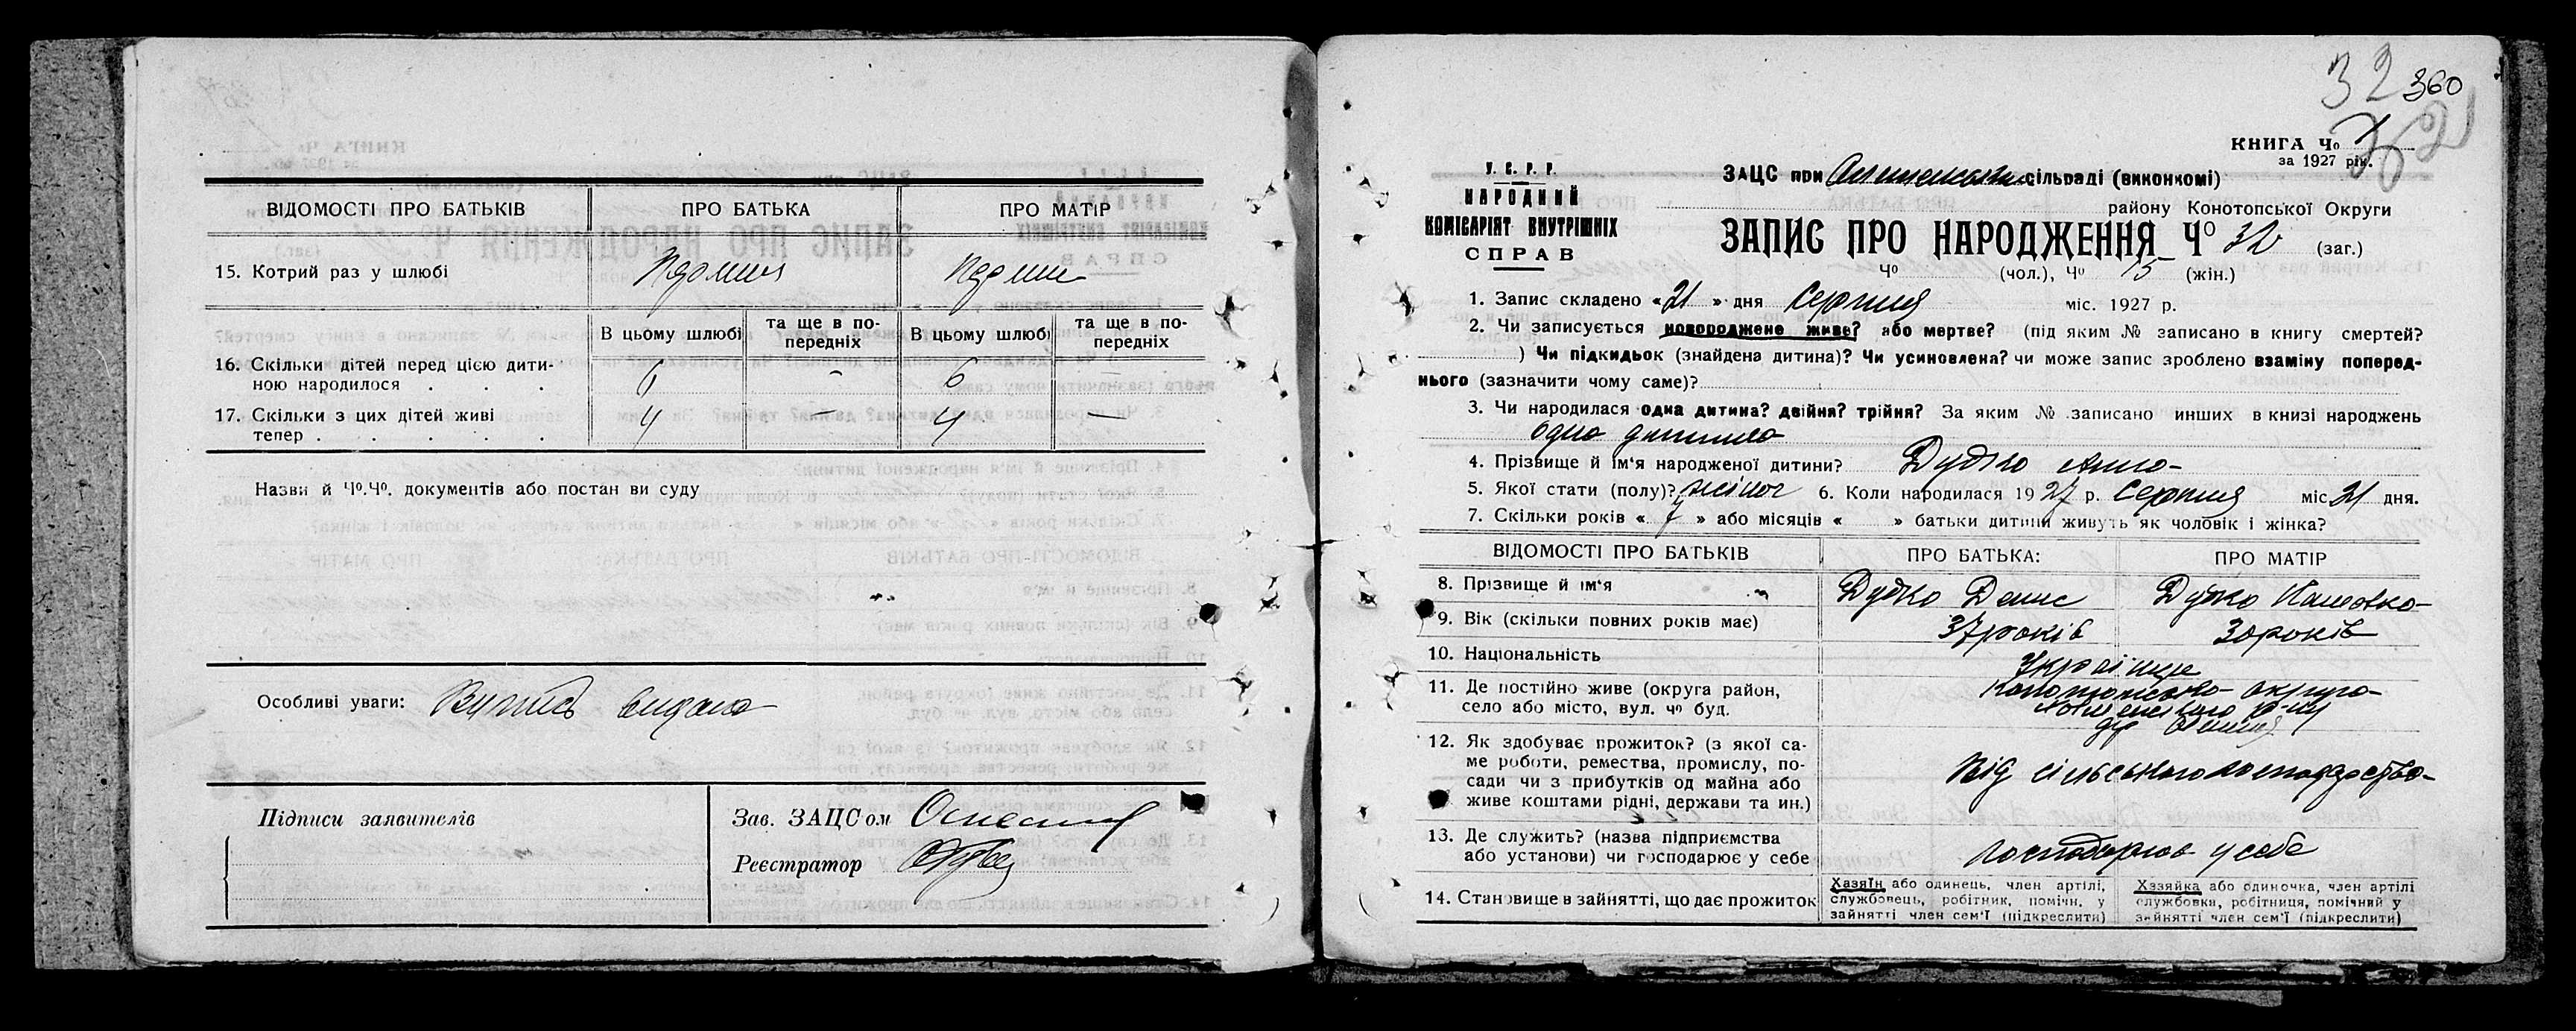 ВІДОМОСТІ ПРО БАТЬКІВ ПРО БАТЬКА ПРО МАТІР
15. Котрий раз у шлюбі
В цьому шлюбі та ще в по-передніх В цьому шлюбі та ще в по-передніх
16. Скільки дітей перед цією дити-
ною народилося . . . 6 - 6 -
17. Скільки з цих дітей живі
тепер . . . . . 4 - 4 -
Назви й Чо.Чо. документів або постан ви суду
Особливі уваги: Випись видана
Підписи заявителів
Зав. ЗАЦСом
Реєстратор
32 360
КНИГА Чо
за 1927 рік.
У. С. Р. Р.
НАРОДНИЙ
КОМІСАРІЯТ ВНУТРІШНІХ
СПРАВ
ЗАЦС при сільраді (виконкомі)
району Конотопської Округи
ЗАПИС ПРО НАРОДЖЕННЯ Чо 32 (заг.)
Чо (чол.), Чо 15 (жін.)
1. Запис складено «21» дня Серпня міс. 1927 р.
2. Чи записується новороджене живе? або мертве? (під яким № записано в книгу смертей?
) Чи підкидьок (знайдена дитина)? Чи усиновлена? чи може запис зроблено взаміну поперед-
нього (зазначити чому саме)?
3. Чи народилася одна дитина? двійня? трійня? За яким № записано инших в книзі народжень
одна дитина
4. Прізвище й ім'я народженої дитини? Дудко Анна
5. Якої стати (полу)? жіноч 6. Коли народилася 1927 р. Серпня міс 21 дня.
7. Скільки років «7» або місяців « » батьки дитини живуть як чоловік і жінка?
ВІДОМОСТІ ПРО БАТЬКІВ ПРО БАТЬКА: ПРО МАТІР
8. Прізвище й ім'я Дудко Денис Дудко
9. Вік (скільки повних років має) 37 років 30 років
10. Національність Українці
11. Де постійно живе (округа район,
село або місто, вул. чо буд. Конотопська округа
12. Як здобуває прожиток? (з якої са-
ме роботи, ремества, промислу, по-
сади чи з прибутків од майна або
живе коштами рідні, держави та ин.) Від сільського господарства
13. Де служить? (назва підприємства
або установи) чи господарює у себе господарює у себе
14. Становище в зайнятті, що дає прожиток
Хазяїн або одинець, член артілі,
службовець, робітник, помічн. у
зайнятті член сем'ї (підкреслити)
Хазяйка або одиночка, член артілі
службовка, робітниця, помічний у
зайнятті член сем'ї (підкреслити)